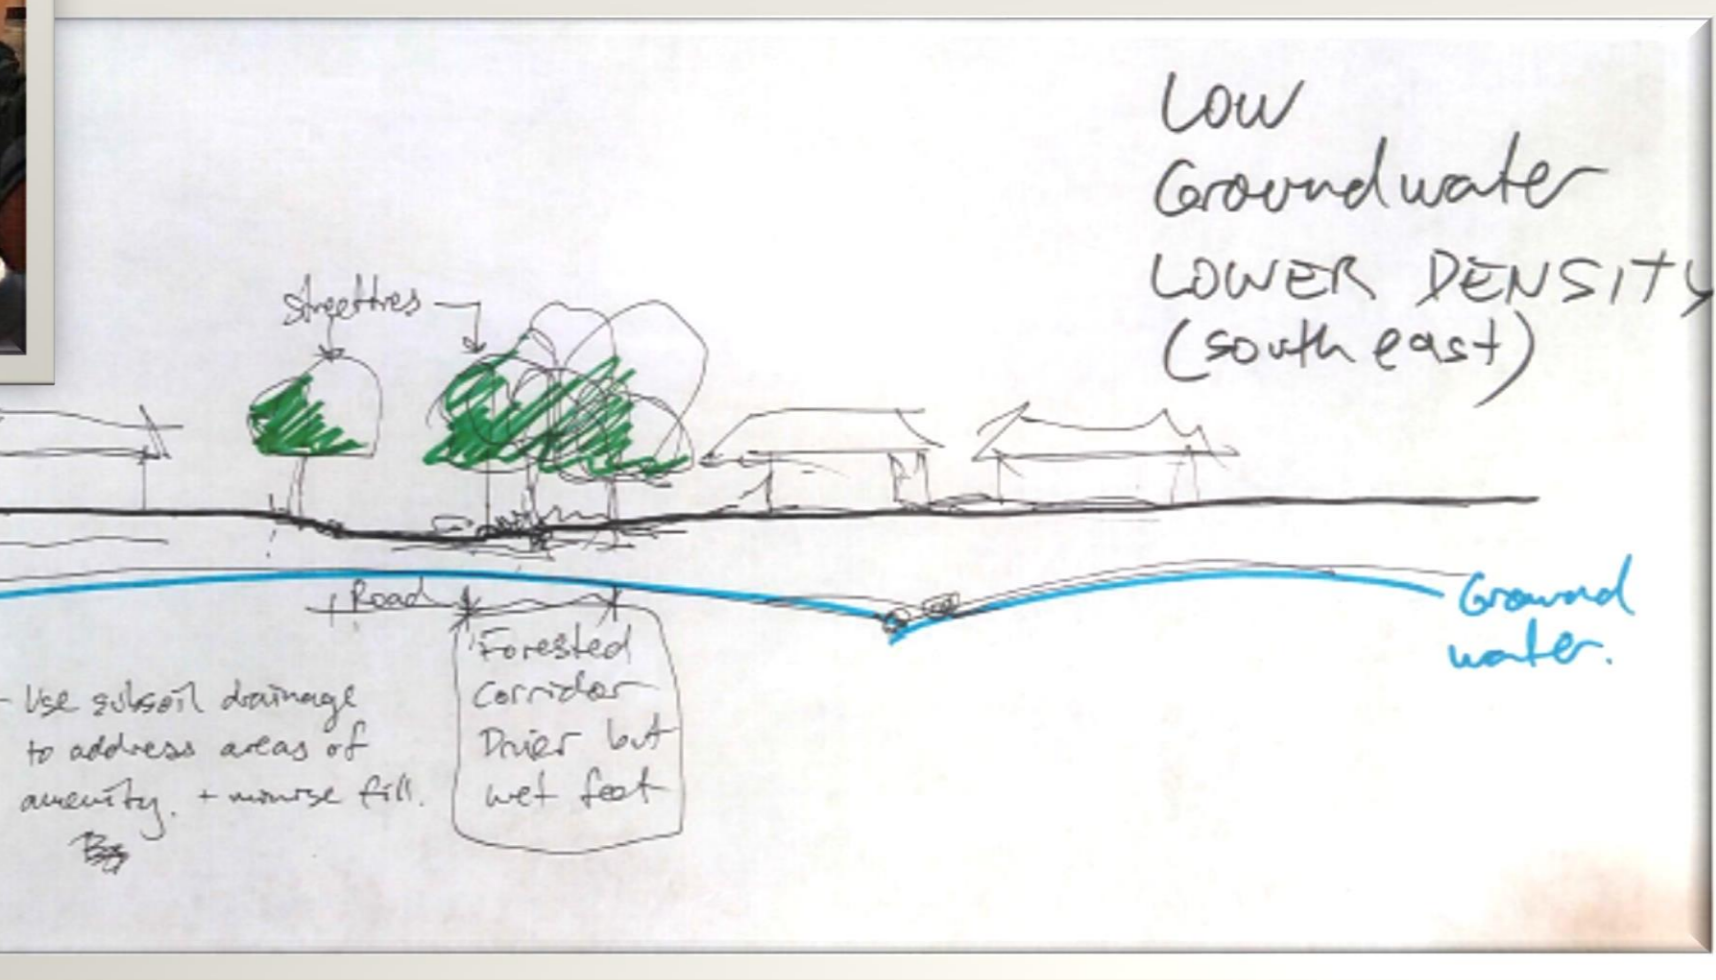 Low
Groundwater
LOWER DENSITY
(south east)
Streettres
Road
Forested
Corridor
Drier but
wet feet
- Use subsoil drainage
to address areas of
amenity. + minise fill.
Ground
water.